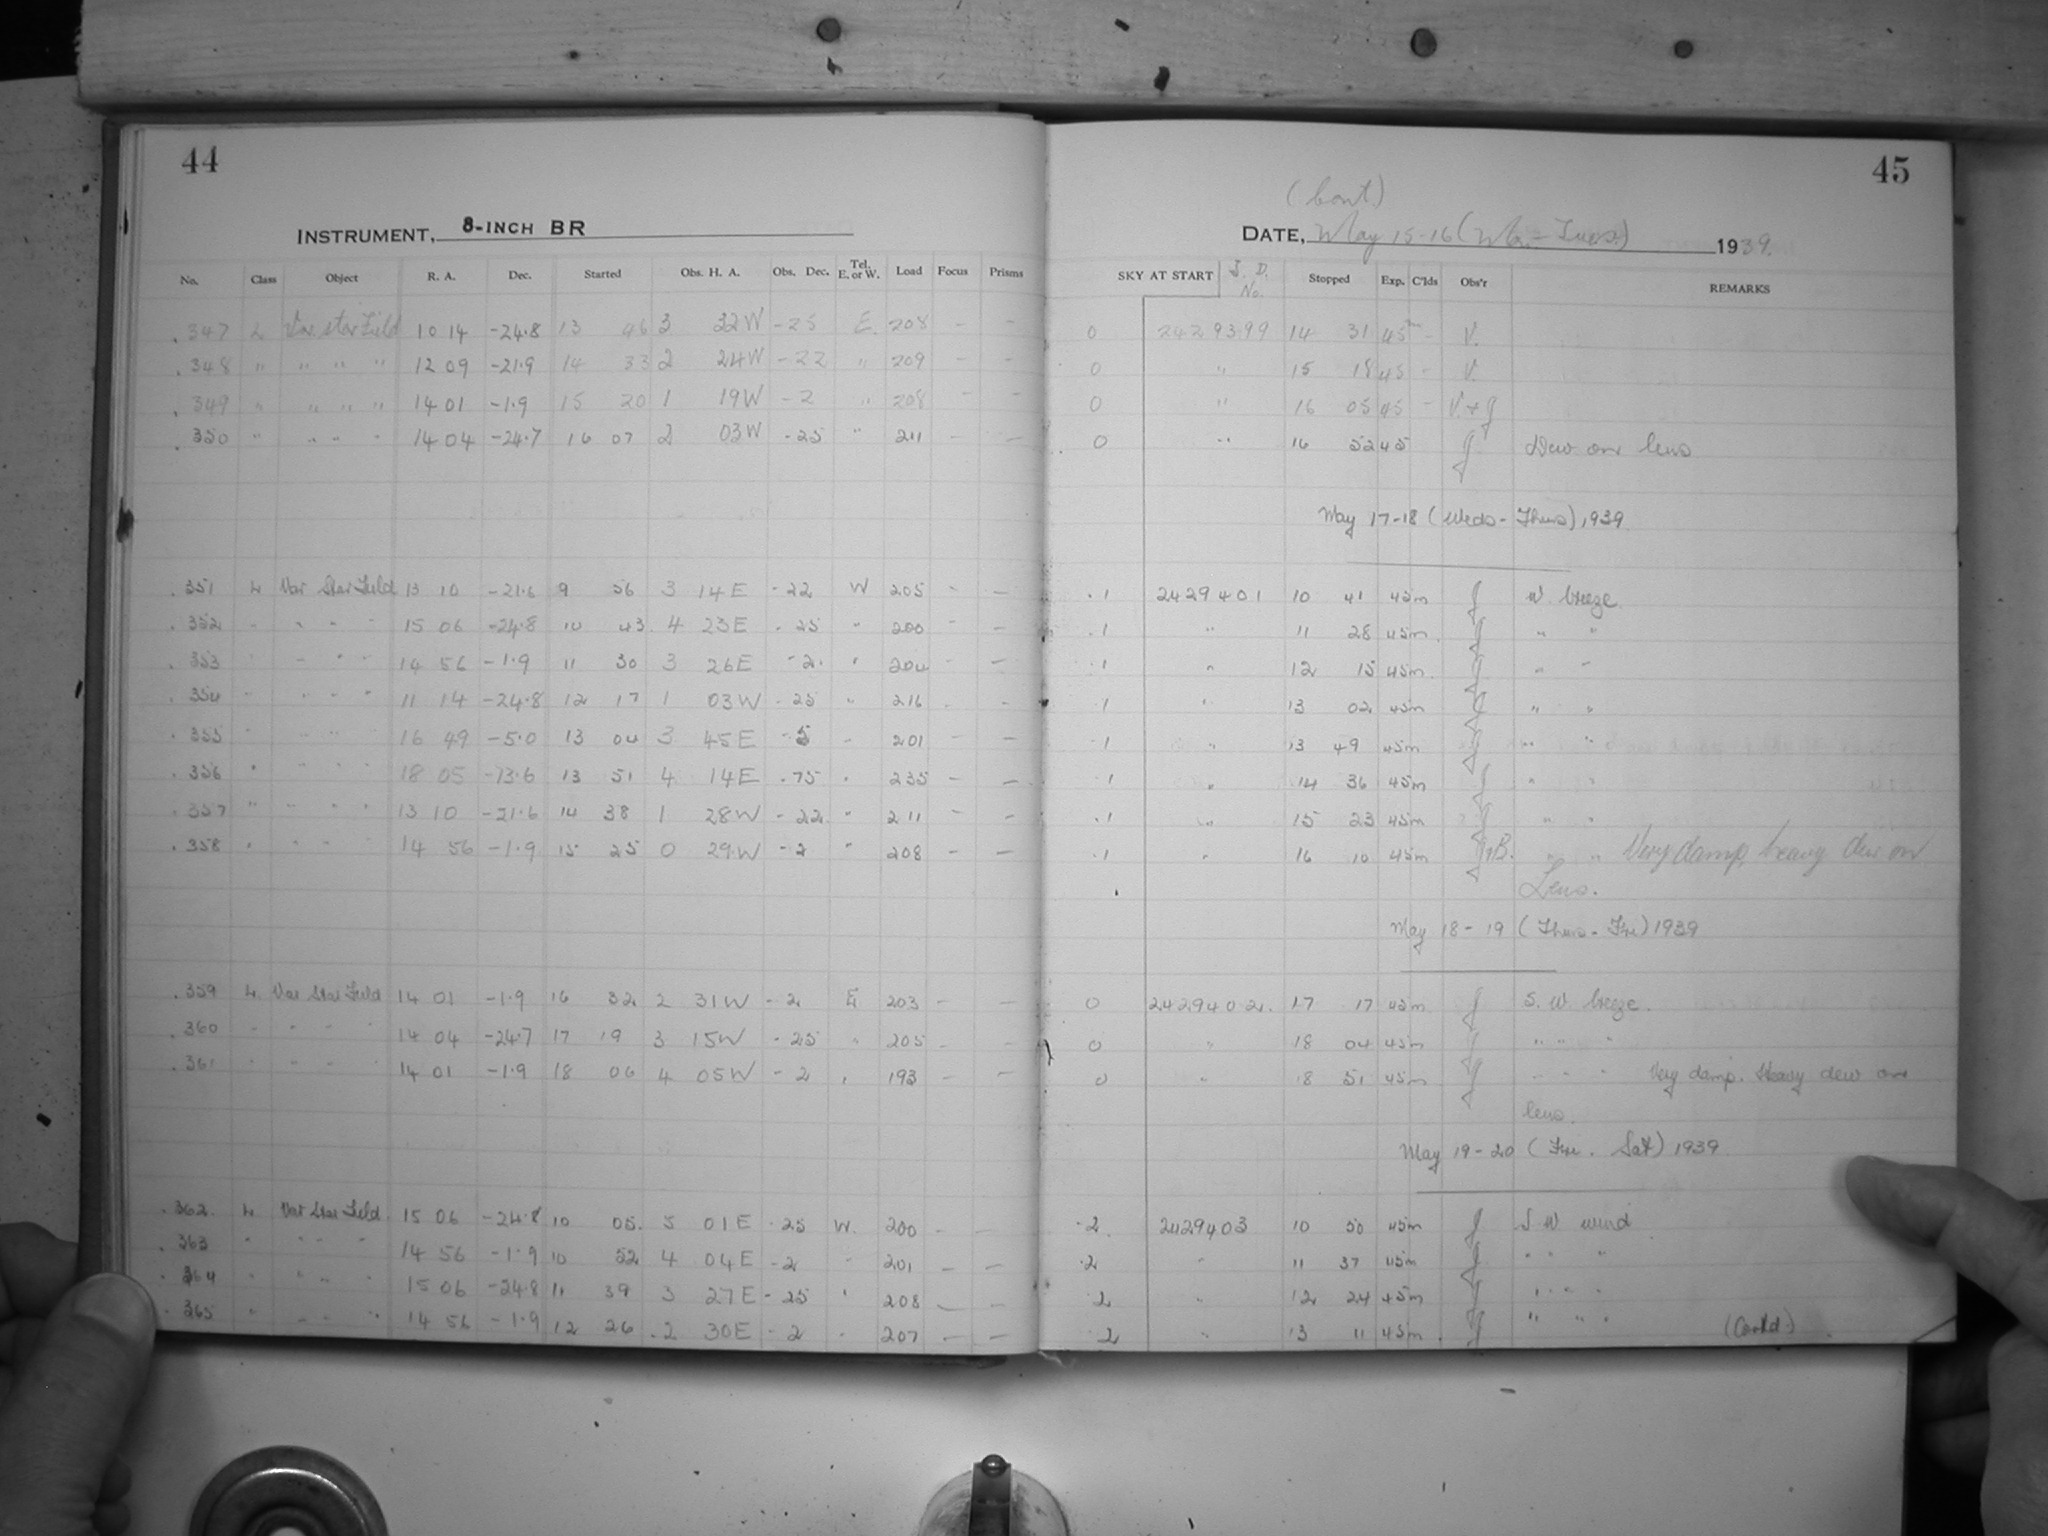 44
INSTRUMENT, 8-INCH BR
No. Class Object R. A. Dec. Started Obs. H. A. Obs. Dec. Tel. E. or W. Load Focus Prisms
.347 L Var star Field 10 14 -24.8 13 46 3 32W -25 E. 208 - -
.348 " " " " 12 09 -21.9 14 33 2 24W -22 " 209 - -
.349 " " " " 14 01 -1.9 15 20 1 19W -2 " 208 - -
.350 " " " " 14 04 -24.7 16 07 2 03W -25 " 211 - -
.351 L Var Star Field 13 10 -21.6 9 56 3 14E -22 W 205 - -
.352 " " " " 15 06 -24.8 10 43 4 23E -25 " 200 - -
.353 " " " " 14 56 -1.9 11 30 3 26E -2 " 204 - -
.354 " " " " 11 14 -24.8 12 17 1 03W -25 " 216 - -
.355 " " " " 16 49 -5.0 13 04 3 45E -5 " 201 - -
.356 " " " " 18 05 -73.6 13 51 4 14E -75 " 235 - -
.357 " " " " 13 10 -21.6 14 38 1 28W -22 " 211 - -
.358 " " " " 14 56 -1.9 15 25 0 29W -2 " 208 - -
.359 L Var Star Field 14 01 -1.9 16 32 2 31W -2 E 203 - -
.360 " " " " 14 04 -24.7 17 19 3 15W -25 " 205 - -
.361 " " " " 14 01 -1.9 18 06 4 05W -2 " 193 - -
.362 L Var Star Field 15 06 -24.8 10 05 5 01E -25 W. 200 - -
.363 " " " " 14 56 -1.9 10 52 4 04E -2 " 201 - -
.364 " " " " 15 06 -24.8 11 39 3 27E -25 " 208 - -
.365 " " " " 14 56 -1.9 12 26 2 30E -2 " 207 - -
45
(Cont.)
DATE, May 15-16 1939.
SKY AT START J. D. No. Stopped Exp. C'lds Obs'r REMARKS
0 2429399 14 31 45m - V.
0 " 15 18 45 - V.
0 " 16 05 45 - V. + J
0 " 16 52 45 J Dew on lens
May 17-18 (Weds - Thurs) 1939
.1 2429401 10 41 45m J W. breeze.
.1 " 11 28 45m J " "
.1 " 12 15 45m J " "
.1 " 13 02 45m J " "
.1 " 13 49 45m J " "
.1 " 14 36 45m J " "
.1 " 15 23 45m J " "
.1 " 16 10 45m J+B. " " Very damp, heavy dew on
Lens.
May 18-19 (Thurs - Fri) 1939
0 2429402. 17 17 45m J S. W breeze.
0 " 18 04 45m J " " "
0 " 18 51 45m J " " " Very damp. Heavy dew on
lens.
May 19-20 (Fri. Sat) 1939
.2 2429403 10 50 45m J S W wind
.2 " 11 37 45m J " " "
.2 " 12 24 45m J " " "
.2 " 13 11 45m J " " " (Contd)